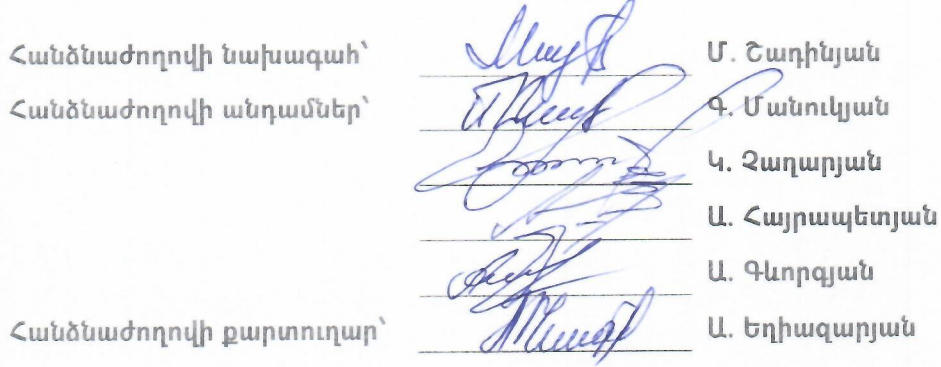 Հանձնաժողովի նախագահ՝ Մ. Շադինյան
Հանձնաժողովի անդամներ՝ Գ. Մանուկյան
Կ. Չաղարյան
Ա. Հայրապետյան
Ա. Գևորգյան
Հանձնաժողովի քարտուղար՝ Ա. Եղիազարյան